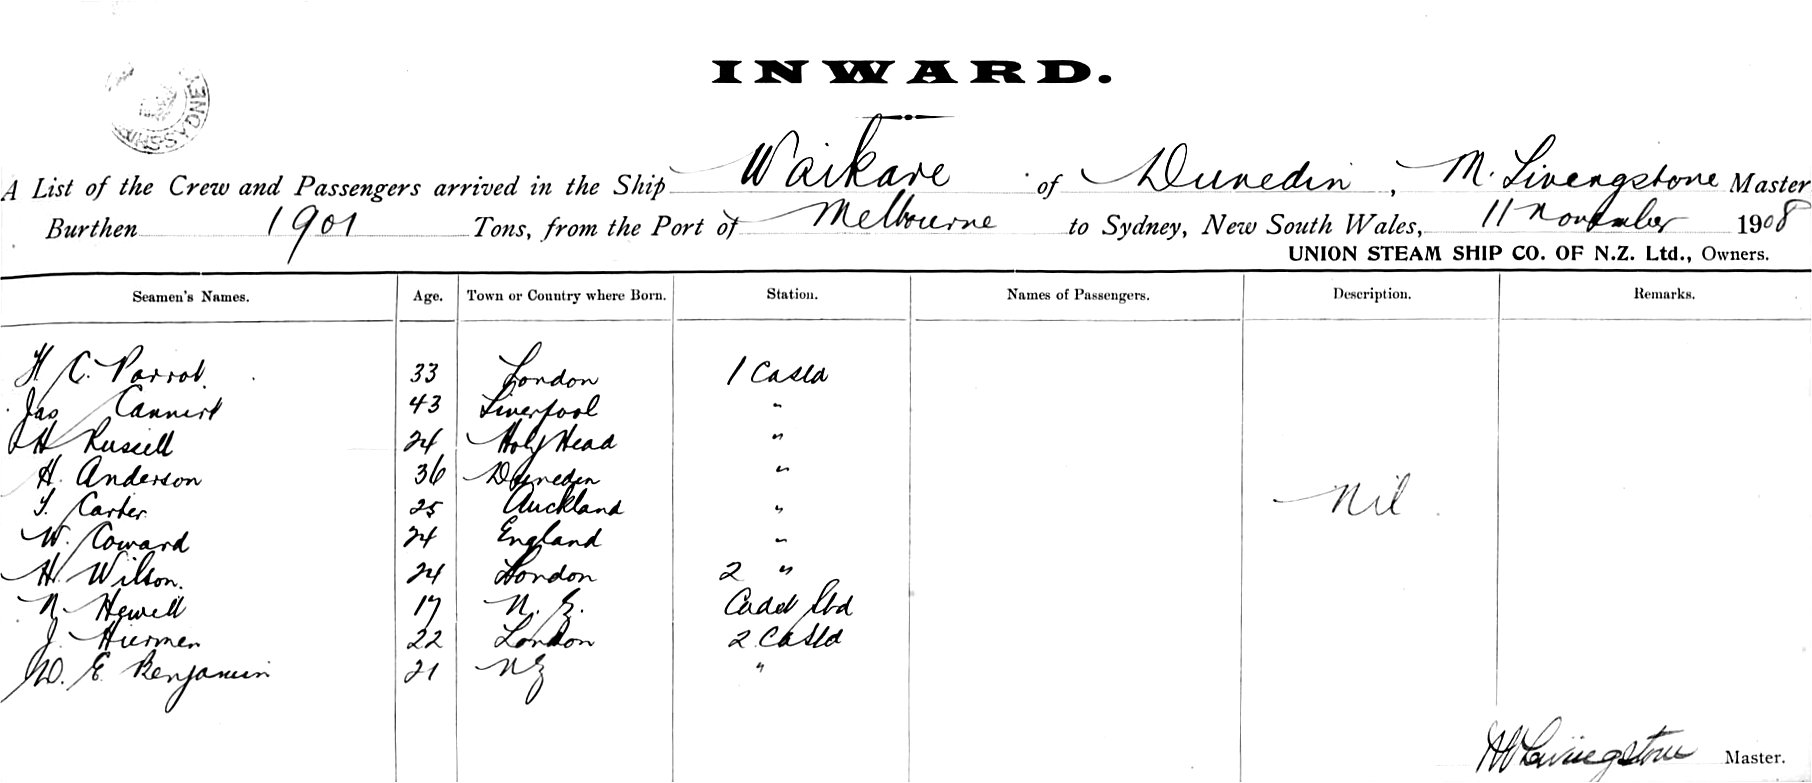 SYDNEY
INWARD.
A List of the Crew and Passengers arrived in the Ship Waikare of Dunedin, M. Livingstone Master
Burthen 1901 Tons, from the Port of Melbourne to Sydney, New South Wales, 11 November 1908
UNION STEAM SHIP CO. OF N.Z. Ltd., Owners.
Seamen's Names. Age. Town or Country where Born. Station. Names of Passengers. Description. Remarks.
H C. Parrot. 33 London 1 Casld
Jas 43 Liverpool "
H Russell 24 Holy Head "
H. Anderson 36 Dunedin "
Nil
Carter 25 Auckland "
W. Coward 24 England "
H. Wilson. 24 London 2 "
N. Hewell 17 N. Z. Cadet Std
J. Hiermen 22 London 2 Casld
W. E. Benjamin 21 NZ "
M Livingstone Master.